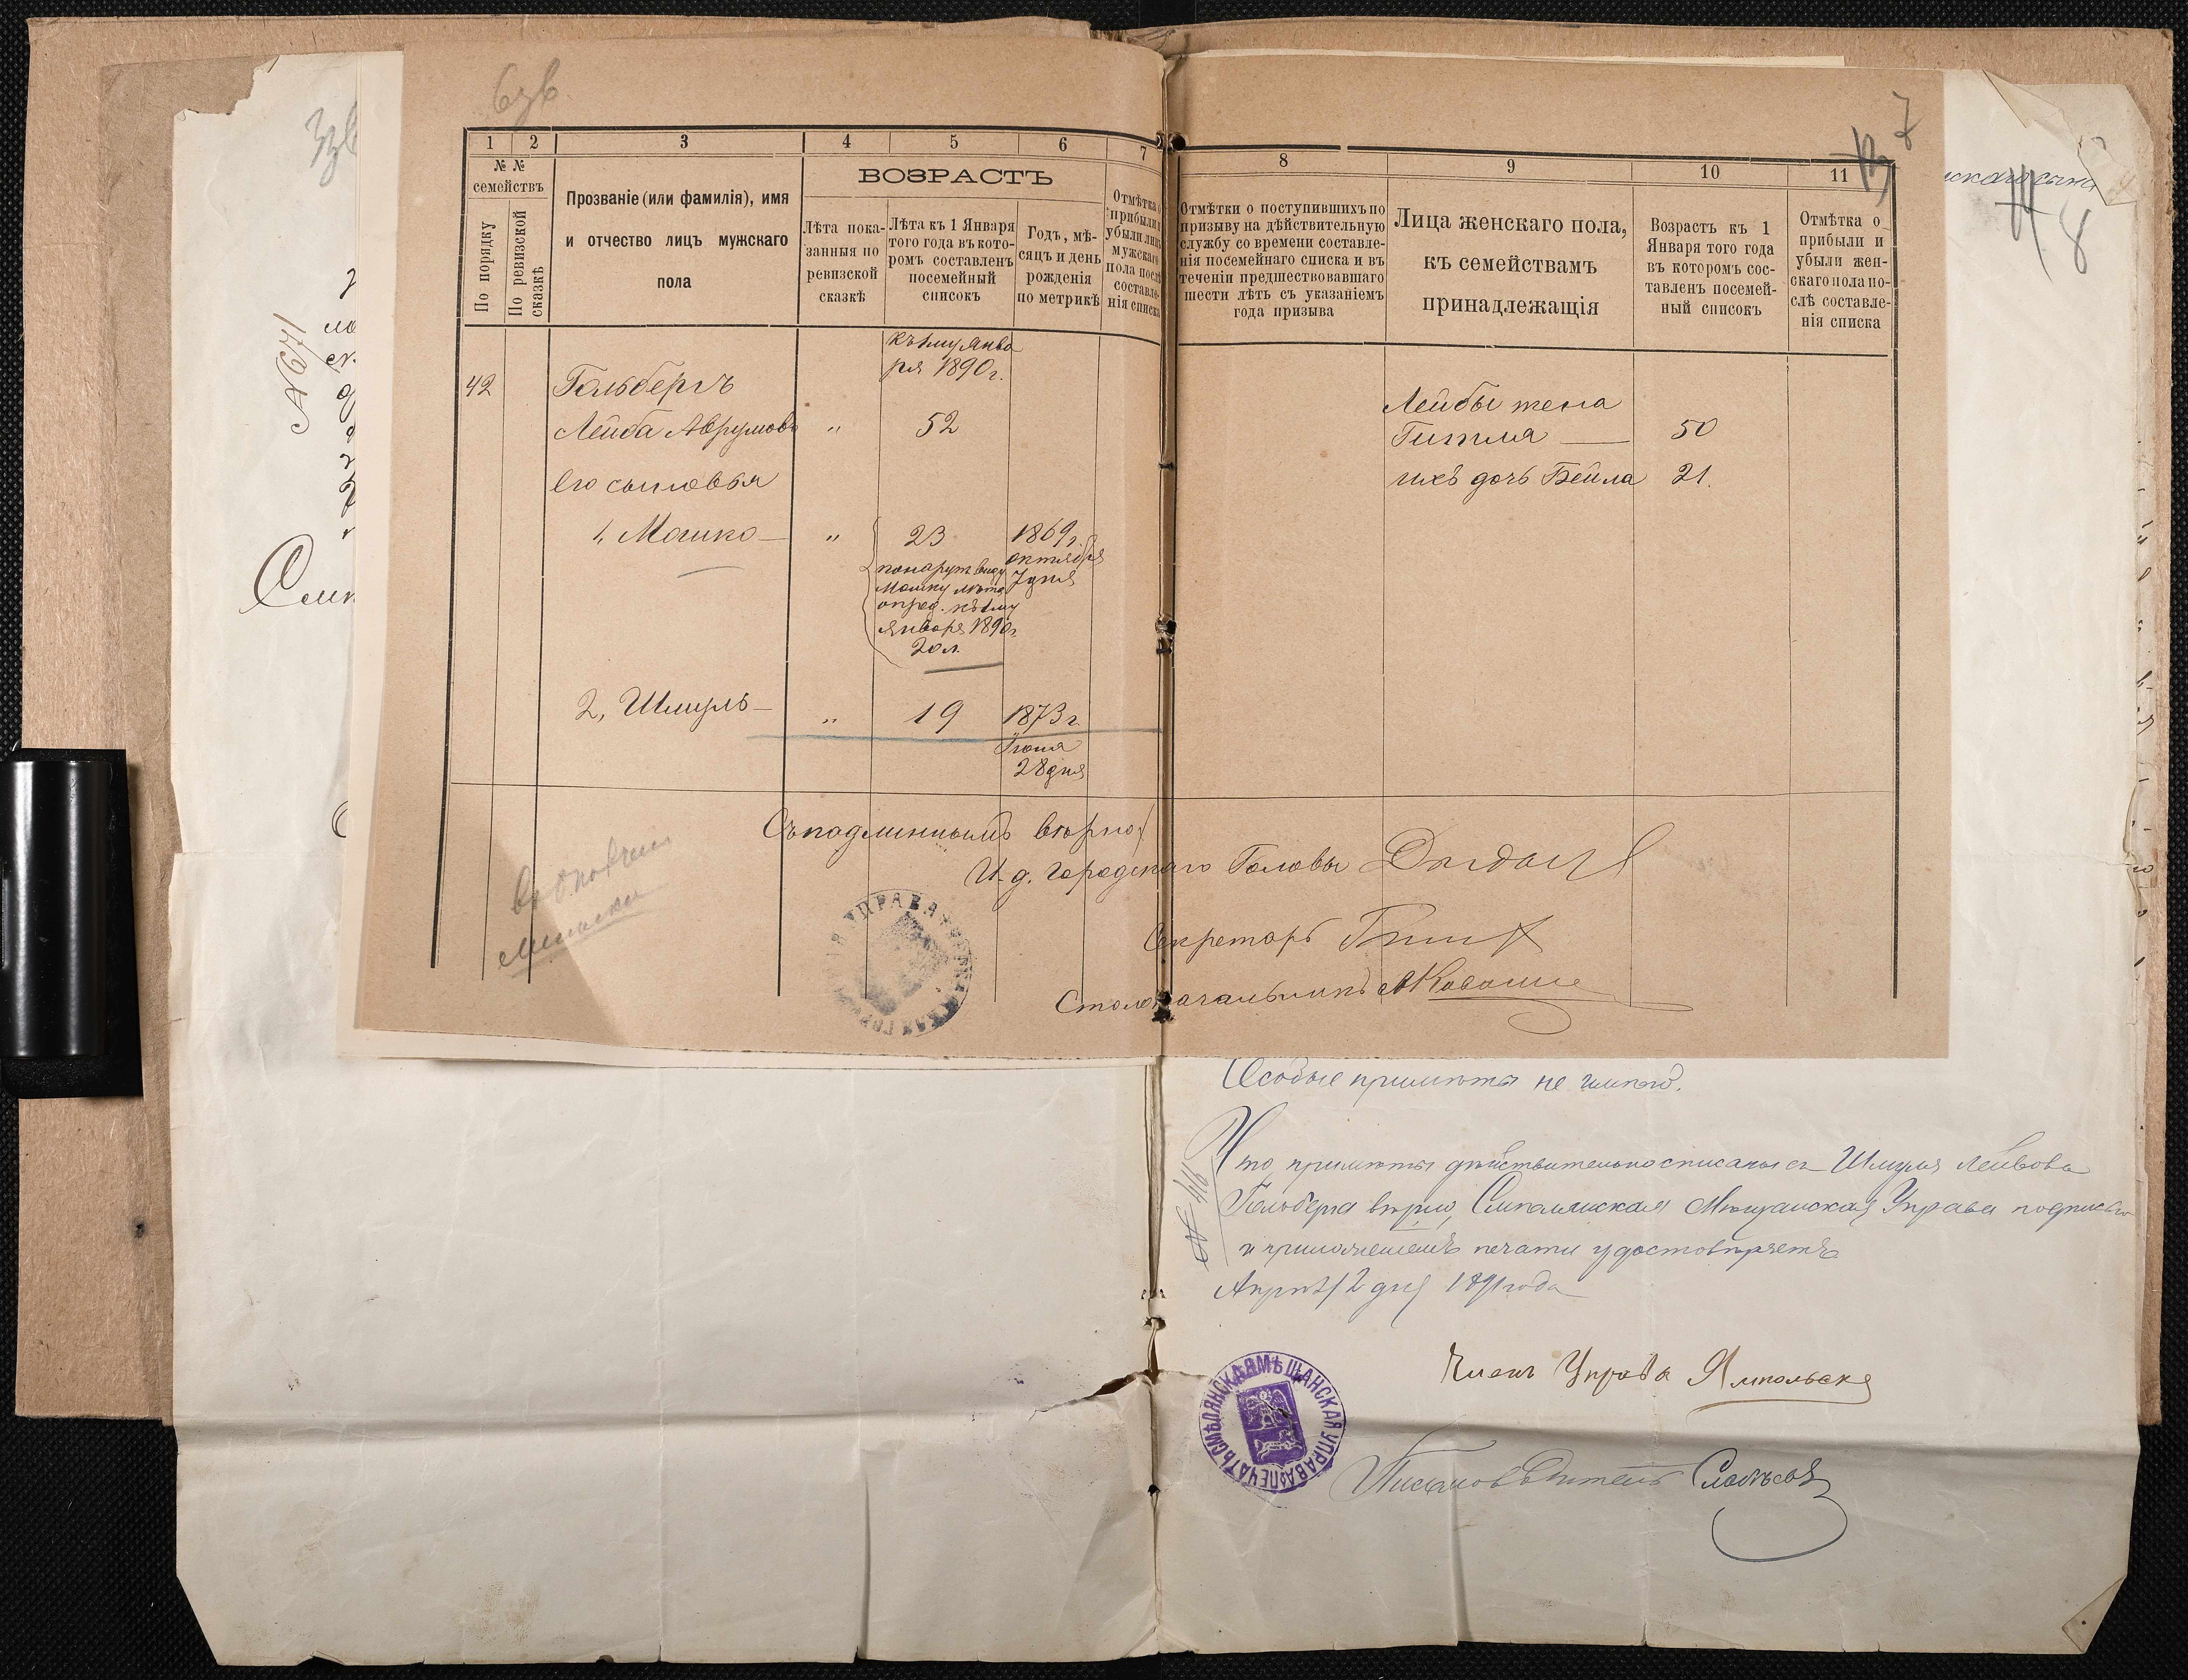 1 2 3 4 5 6 7
№ №
семействъ
По порядку
По ревизской сказкѣ
Прозваніе (или фамилія), имя
и отчество лицъ мужскаго
пола
ВОЗРАСТЪ
Лѣта пока-
занныя по
ревизской
сказкѣ
Лѣта къ 1 Января
того года въ кото-
ромъ составленъ
посемейный
списокъ
Годъ, мѣ-
сяцъ и день
рожденія
по метрикѣ
Отмѣтка о
прибыли и
убыли лицъ
мужскаго
пола послѣ
составле-
нія списка
къ 1му Янва
ря 1890 г.
42 Гольбергъ
Лейба Аврумовъ " 52
его сыновья
1, Мошко " 23 1869 г.
октября
7 дня
Мошку лѣта
опред. къ 1му
января 1890 г.
20 л.
2, Шмуль " 19 1873 г.
Іюня
28 дня
7
8 9 10 11
Отмѣтки о поступившихъ по
призыву на дѣйствительную
службу со времени составле-
нія посемейнаго списка и въ
теченіи предшествовавшаго
шести лѣтъ съ указаніемъ
года призыва
Лица женскаго пола,
къ семействамъ
принадлежащія
Возрастъ къ 1
Января того года
въ которомъ сос-
тавленъ посемей-
ный списокъ
Отмѣтка о
прибыли и
убыли жен-
скаго пола по-
слѣ составле-
нія списка
Лейбы жена
Гитля 50
ихъ дочь Бейла 21.
Съ подлиннымъ вѣрно:
И. д. Городского Головы
Секретарь
Столоначальникъ
УПРАВА
8
Особые примѣты не имѣетъ.
Что примѣты дѣйствительно списаны съ Шмуля Лейбова
Гольберга вѣрно, Смѣлянская Мѣщанская Управа подписью
и приложеніемъ печати удостовѣряетъ
Апрѣля 12 дня 1891 года
Членъ Управы Ямпольскій
ПЕЧАТЬ СМѢЛЯНСКАЯ МѢЩАНСКАЯ УПРАВА
Письмоводитель